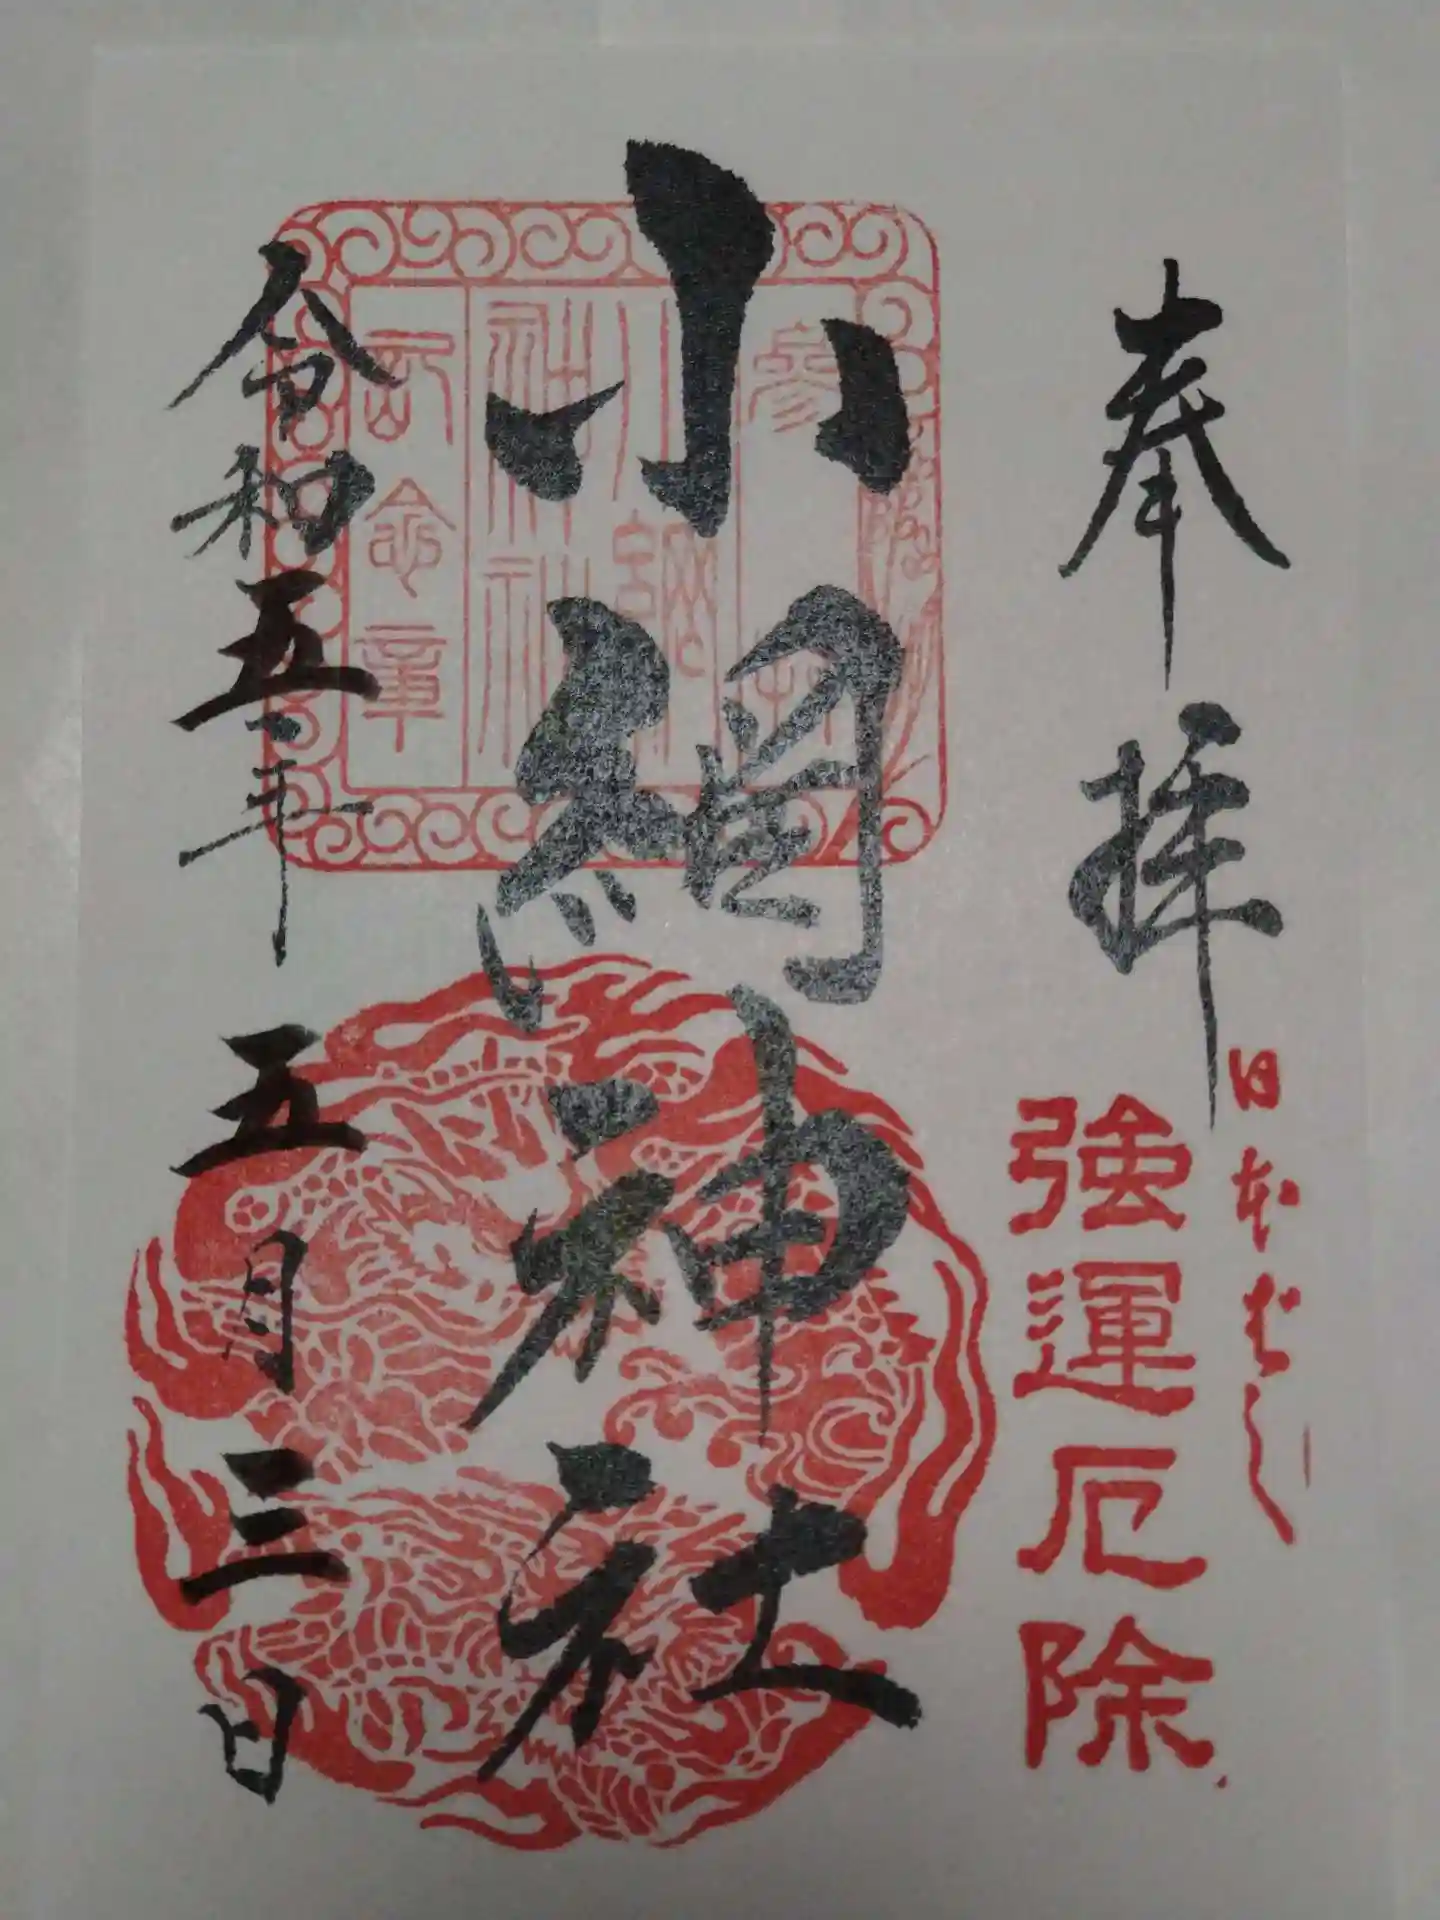 奉拝
日本ばし
強運厄除
小網神社
参拝
小網神社
記念章
令和五年五月三日